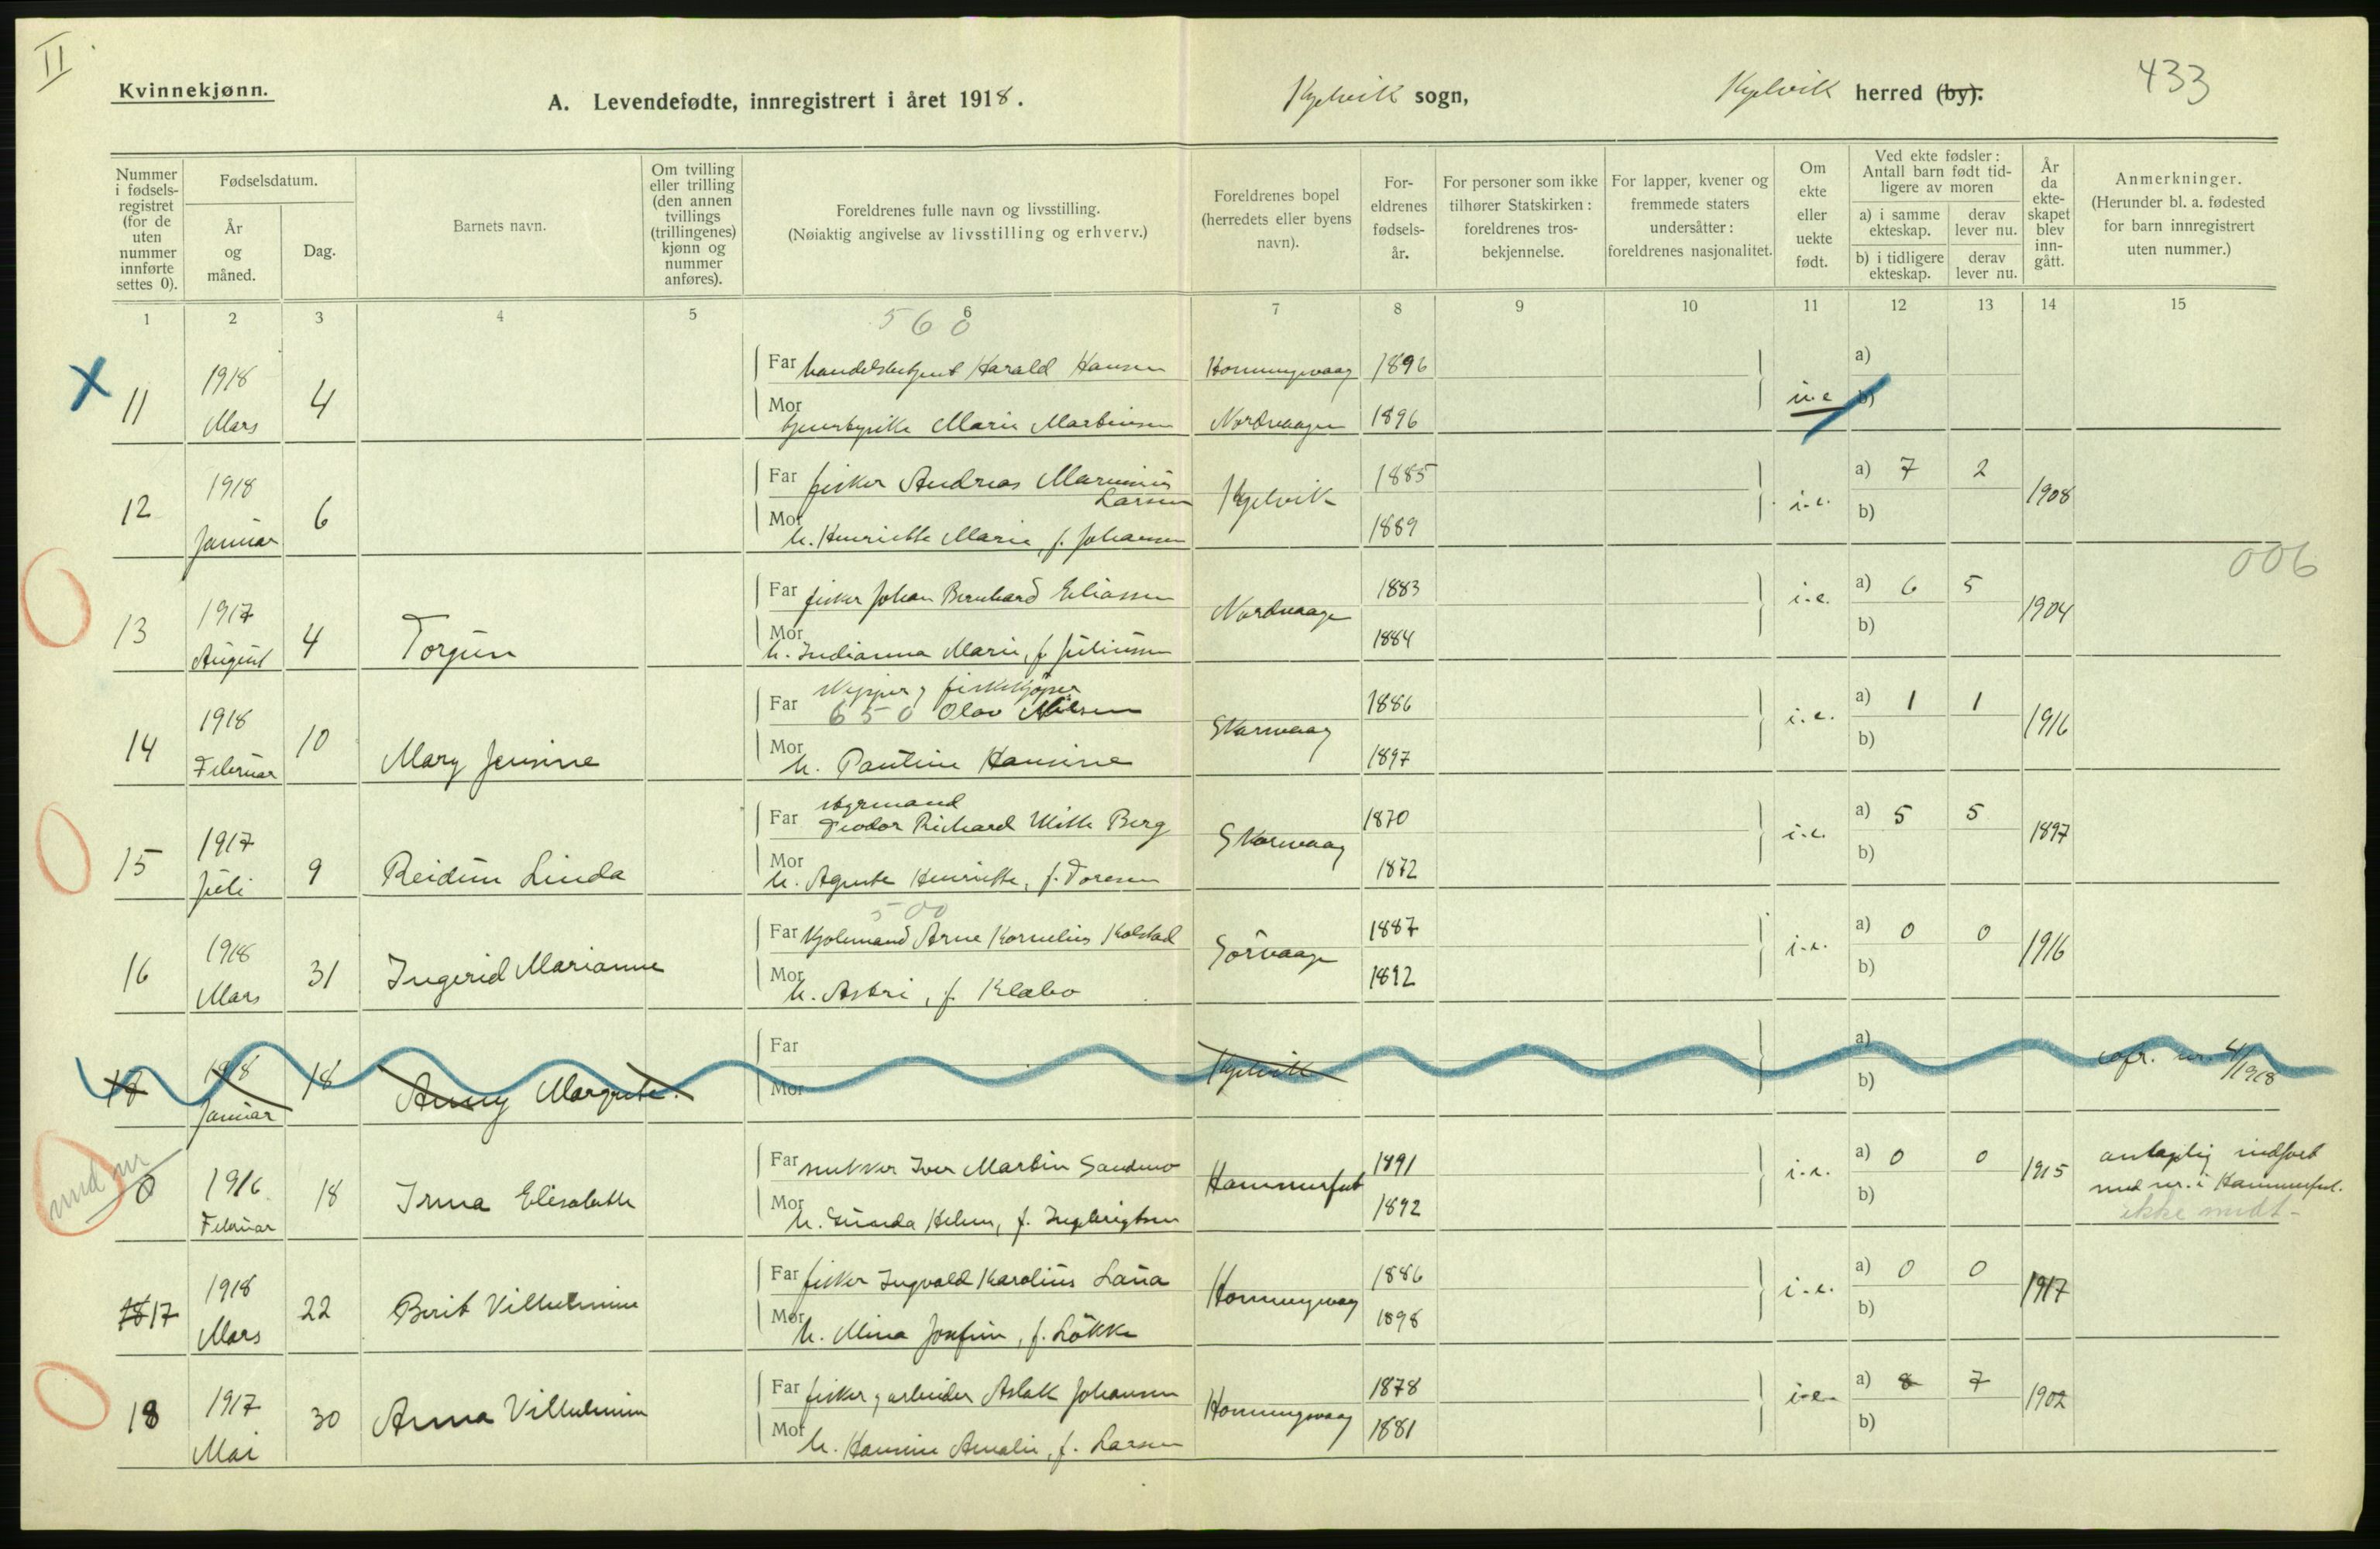 II
Kvinnekjønn.
A. Levendefødte, innregistrert i året 1918.
Kjelvik sogn,
Kjelvik herred (by).
433
Nummer i fødsels-registret (for de uten nummer innførte settes 0).
Fødselsdatum.
År og måned.
Dag.
Barnets navn.
Om tvilling eller trilling (den annen tvillings (trillingenes) kjønn og nummer anføres).
Foreldrenes fulle navn og livsstilling.
(Nøiaktig angivelse av livsstilling og erhverv.)
Foreldrenes bopel (herredets eller byens navn).
For-eldrenes fødsels-år.
For personer som ikke tilhører Statskirken: foreldrenes tros-bekjennelse.
For lapper, kvener og fremmede staters undersåtter: foreldrenes nasjonalitet.
Om ekte eller uekte født.
Ved ekte fødsler: Antall barn født tid-ligere av moren
a) i samme ekteskap.
derav lever nu.
b) i tidligere ekteskap.
derav lever nu.
År da ekte-skapet blev inn-gått.
Anmerkninger.
(Herunder bl. a. fødested for barn innregistrert uten nummer.)
1 2 3 4 5 6 7 8 9 10 11 12 13 14 15
560
X 11 1918 Mars 4
Far handelsbetjent Harald Hansen Honningsvaag 1896
Mor Marie Martinsen Nordvaagen 1896
u.e a) b)
12 1918 Januar 6
Far fisker Andreas Marinius Larsen Kjelvik 1885
Mor h. Henriette Marie, f. Johansen 1889
i.e. a) 7 2 b) 1908
006
13 1917 August 4 Torgun
Far fisker Johan Bernhard Eliassen Nordvaagen 1883
Mor h. Indianna Marie, f. Juliussen 1884
i.e. a) 6 5 b) 1904
14 1918 Februar 10 Mary Jensine
skipper, fiskekjøper
Far 650 Olav Nilsen Skarsvaag 1886
Mor h. Pauline Hansine 1897
i.e. a) 1 1 b) 1916
15 1917 Juli 9 Reidun Linda
styrmand
Far Teodor Richard Berg Skarsvaag 1870
Mor h. Agnete Henriette, f. Toresen 1872
i.e. a) 5 5 b) 1897
500
16 1918 Mars 31 Ingerid Marianne
Far Arne Kornelius Kolstad Sörvaage 1887
Mor h. Astri, f. Klæbo 1892
i.e. a) 0 0 b) 1916
17 1918 Januar 18 Anny Margrete.
Far Kjelvik
Mor
a) b) cfr. nr. 4/1918
med nr
0 1916 Februar 18 Irma Elisabeth
Far snekker Iver Martin Sandmo Hammerfest 1891
Mor h. Gunda Helene, f. Ingebrigtsen 1892
i.e. a) 0 0 b) 1915 antagelig indført med nr. i Hammerfest.
ikke
18 17 1918 Mars 22 Berit Vilhelmine
Far fisker Ingvald Karolius Lana Honningsvaag 1886
Mor h. Mina Josefine, f. Løkke 1898
i.e. a) 0 0 b) 1917
18 1917 Mai 30 Anna Vilhelmine
Far fisker, arbeider Aslak Johansen Honningsvaag 1878
Mor h. Hansine Amalie, f. Larsen 1881
i.e. a) 8 7 b) 1902